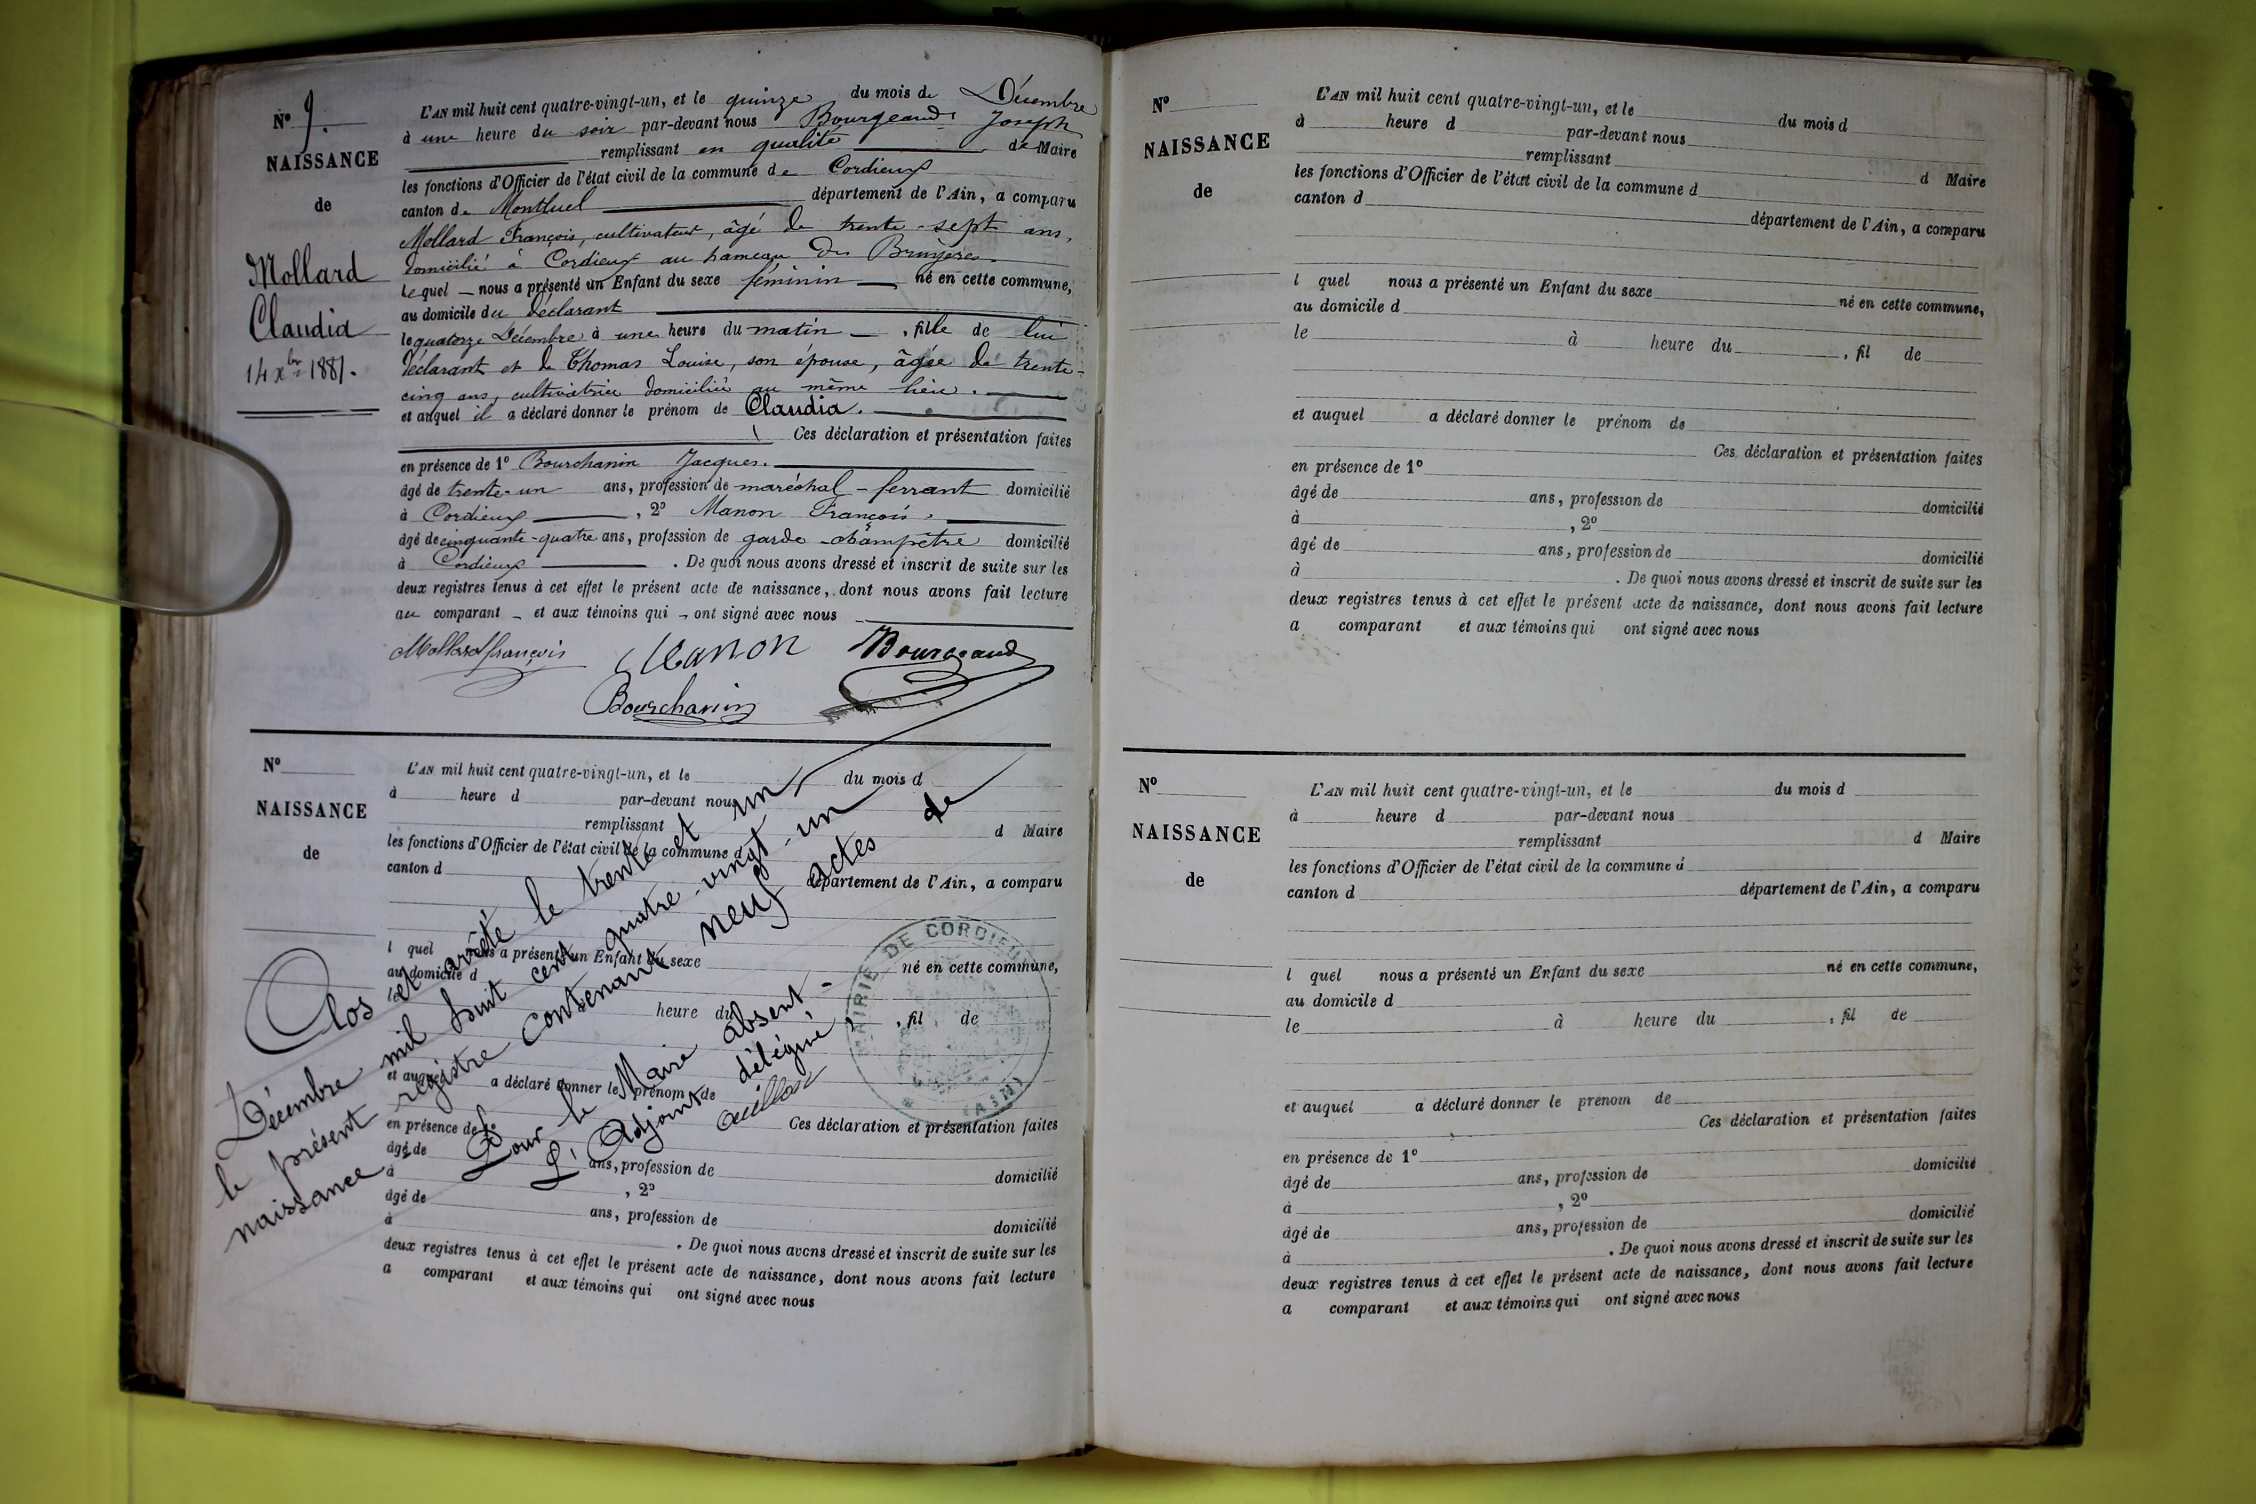 N° 9.
NAISSANCE
de
Mollard
Claudia
14 xbre 1881.
L'AN mil huit cent quatre-vingt-un, et le quinze du mois de Décembre
à une heure du soir par-devant nous Bourgeaud Joseph
remplissant en qualité de Maire
les fonctions d'Officier de l'état civil de la commune de Cordieux
canton de Montluel département de l'Ain, a comparu
Mollard François, cultivateur, âgé de trente-sept ans,
domicilié à Cordieux au hameau des Bruyères.
lequel nous a présenté un Enfant du sexe féminin né en cette commune,
au domicile du déclarant
le quatorze Décembre à une heure du matin, fille de lui
déclarant et de Thomas Louise, son épouse, âgée de trente-
cinq ans, cultivatrice domiciliée au même lieu.
et auquel il a déclaré donner le prénom de Claudia.
Ces déclaration et présentation faites
en présence de 1° Bourchanin Jacques.
âgé de trente-un ans, profession de maréchal-ferrant domicilié
à Cordieux, 2° Manon François,
âgé de cinquante-quatre ans, profession de garde-champêtre domicilié
à Cordieux. De quoi nous avons dressé et inscrit de suite sur les
deux registres tenus à cet effet le présent acte de naissance, dont nous avons fait lecture
au comparant et aux témoins qui ont signé avec nous
Mollard françois Manon Bourgeaud
Bourchanin
N°
NAISSANCE
de
L'AN mil huit cent quatre-vingt-un, et le du mois d
à heure d par-devant nous
remplissant d Maire
les fonctions d'Officier de l'état civil de la commune d
canton d département de l'Ain, a comparu
l quel nous a présenté un Enfant du sexe né en cette commune,
au domicile d
le heure du , fil de
et auquel a déclaré donner le prénom de
Ces déclaration et présentation faites
en présence de 1°
âgé de ans, profession de domicilié
à , 2°
âgé de ans, profession de domicilié
à . De quoi nous avons dressé et inscrit de suite sur les
deux registres tenus à cet effet le présent acte de naissance, dont nous avons fait lecture
a comparant et aux témoins qui ont signé avec nous
Clos et arrêté le trente et un
Décembre mil huit cent quatre-vingt-un
le présent registre contenant neuf actes de
naissance.
Pour le Maire absent
L'Adjoint délégué,
MAIRIE DE CORDIEUX
(AIN)
N°
NAISSANCE
de
L'AN mil huit cent quatre-vingt-un, et le du mois d
à heure d par-devant nous
remplissant d Maire
les fonctions d'Officier de l'état civil de la commune d
canton d département de l'Ain, a comparu
l quel nous a présenté un Enfant du sexe né en cette commune,
au domicile d
le à heure du , fil de
et auquel a déclaré donner le prénom de
Ces déclaration et présentation faites
en présence de 1°
âgé de ans, profession de domicilié
à , 2°
âgé de ans, profession de domicilié
à . De quoi nous avons dressé et inscrit de suite sur les
deux registres tenus à cet effet le présent acte de naissance, dont nous avons fait lecture
a comparant et aux témoins qui ont signé avec nous
N°
NAISSANCE
de
L'AN mil huit cent quatre-vingt-un, et le du mois d
à heure d par-devant nous
remplissant d Maire
les fonctions d'Officier de l'état civil de la commune d
canton d département de l'Ain, a comparu
l quel nous a présenté un Enfant du sexe né en cette commune,
au domicile d
le à heure du , fil de
et auquel a déclaré donner le prénom de
Ces déclaration et présentation faites
en présence de 1°
âgé de ans, profession de domicilié
à , 2°
âgé de ans, profession de domicilié
à . De quoi nous avons dressé et inscrit de suite sur les
deux registres tenus à cet effet le présent acte de naissance, dont nous avons fait lecture
a comparant et aux témoins qui ont signé avec nous